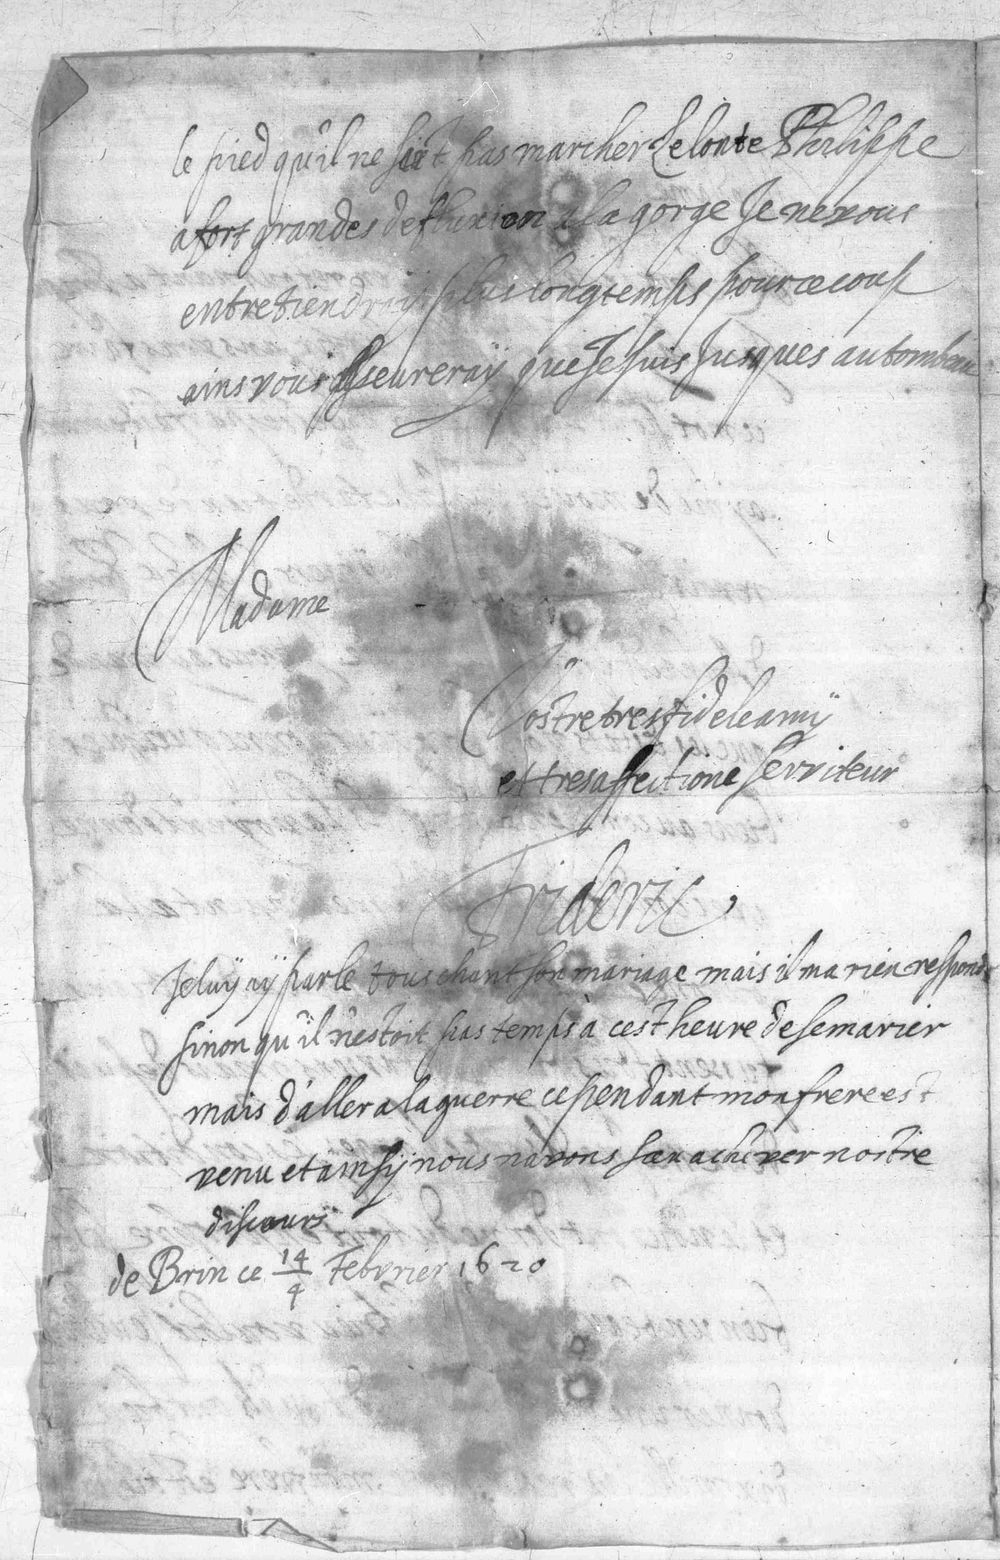 le pied qu'il ne sçait pas marcher le Conte Philippe
a fort grandes defluxion a la gorge Je ne vous
entretiendraÿ plus longtemps pour ce coup
ains vous asseureraÿ que Je suis Jusques au tombeau
Madame
Vostre tres fidele amÿ
et tres affectioné serviteur
Frideric
Je luÿ aÿ parlé touschant son mariage mais il ma rien respondu
sinon qu'il n'estoit pas temps à cest heure de se marier
mais d'aller a la guerre cependant mon frere est
venu et ainsÿ nous navons sceu achever nostre
discours
de Brin ce 14/4 Febvrier 1620